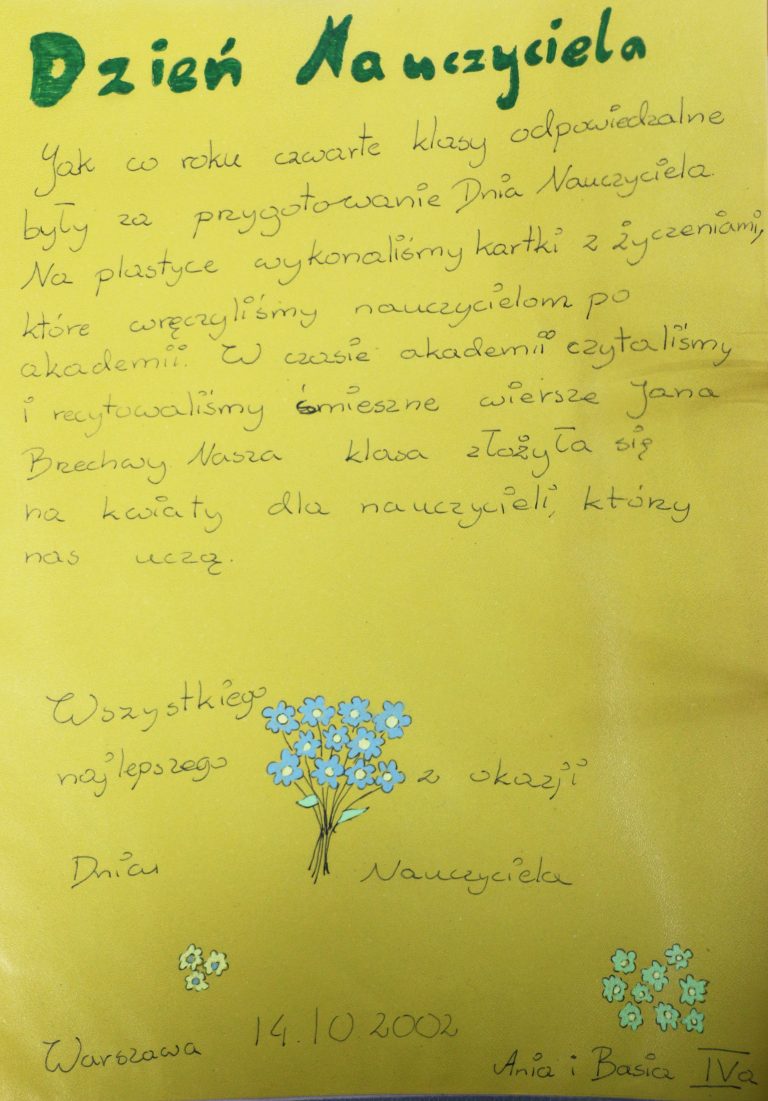 Dzień Nauczyciela
Jak co roku czwarte klasy odpowiedzalne
były za przygotowanie Dnia Nauczyciela.
Na plastyce wykonaliśmy kartki z życzeniami,
które wręczyliśmy nauczycielom po
akademii. W czasie akademii czytaliśmy
i recytowaliśmy śmieszne wiersze Jana
Brzechwy. Nasza klasa złożyła się
na kwiaty dla nauczycieli, którzy
nas uczą.
Wszystkiego
najlepszego z okazji
Dnia Nauczyciela
Warszawa 14.10 2002
Ania i Basia IVa